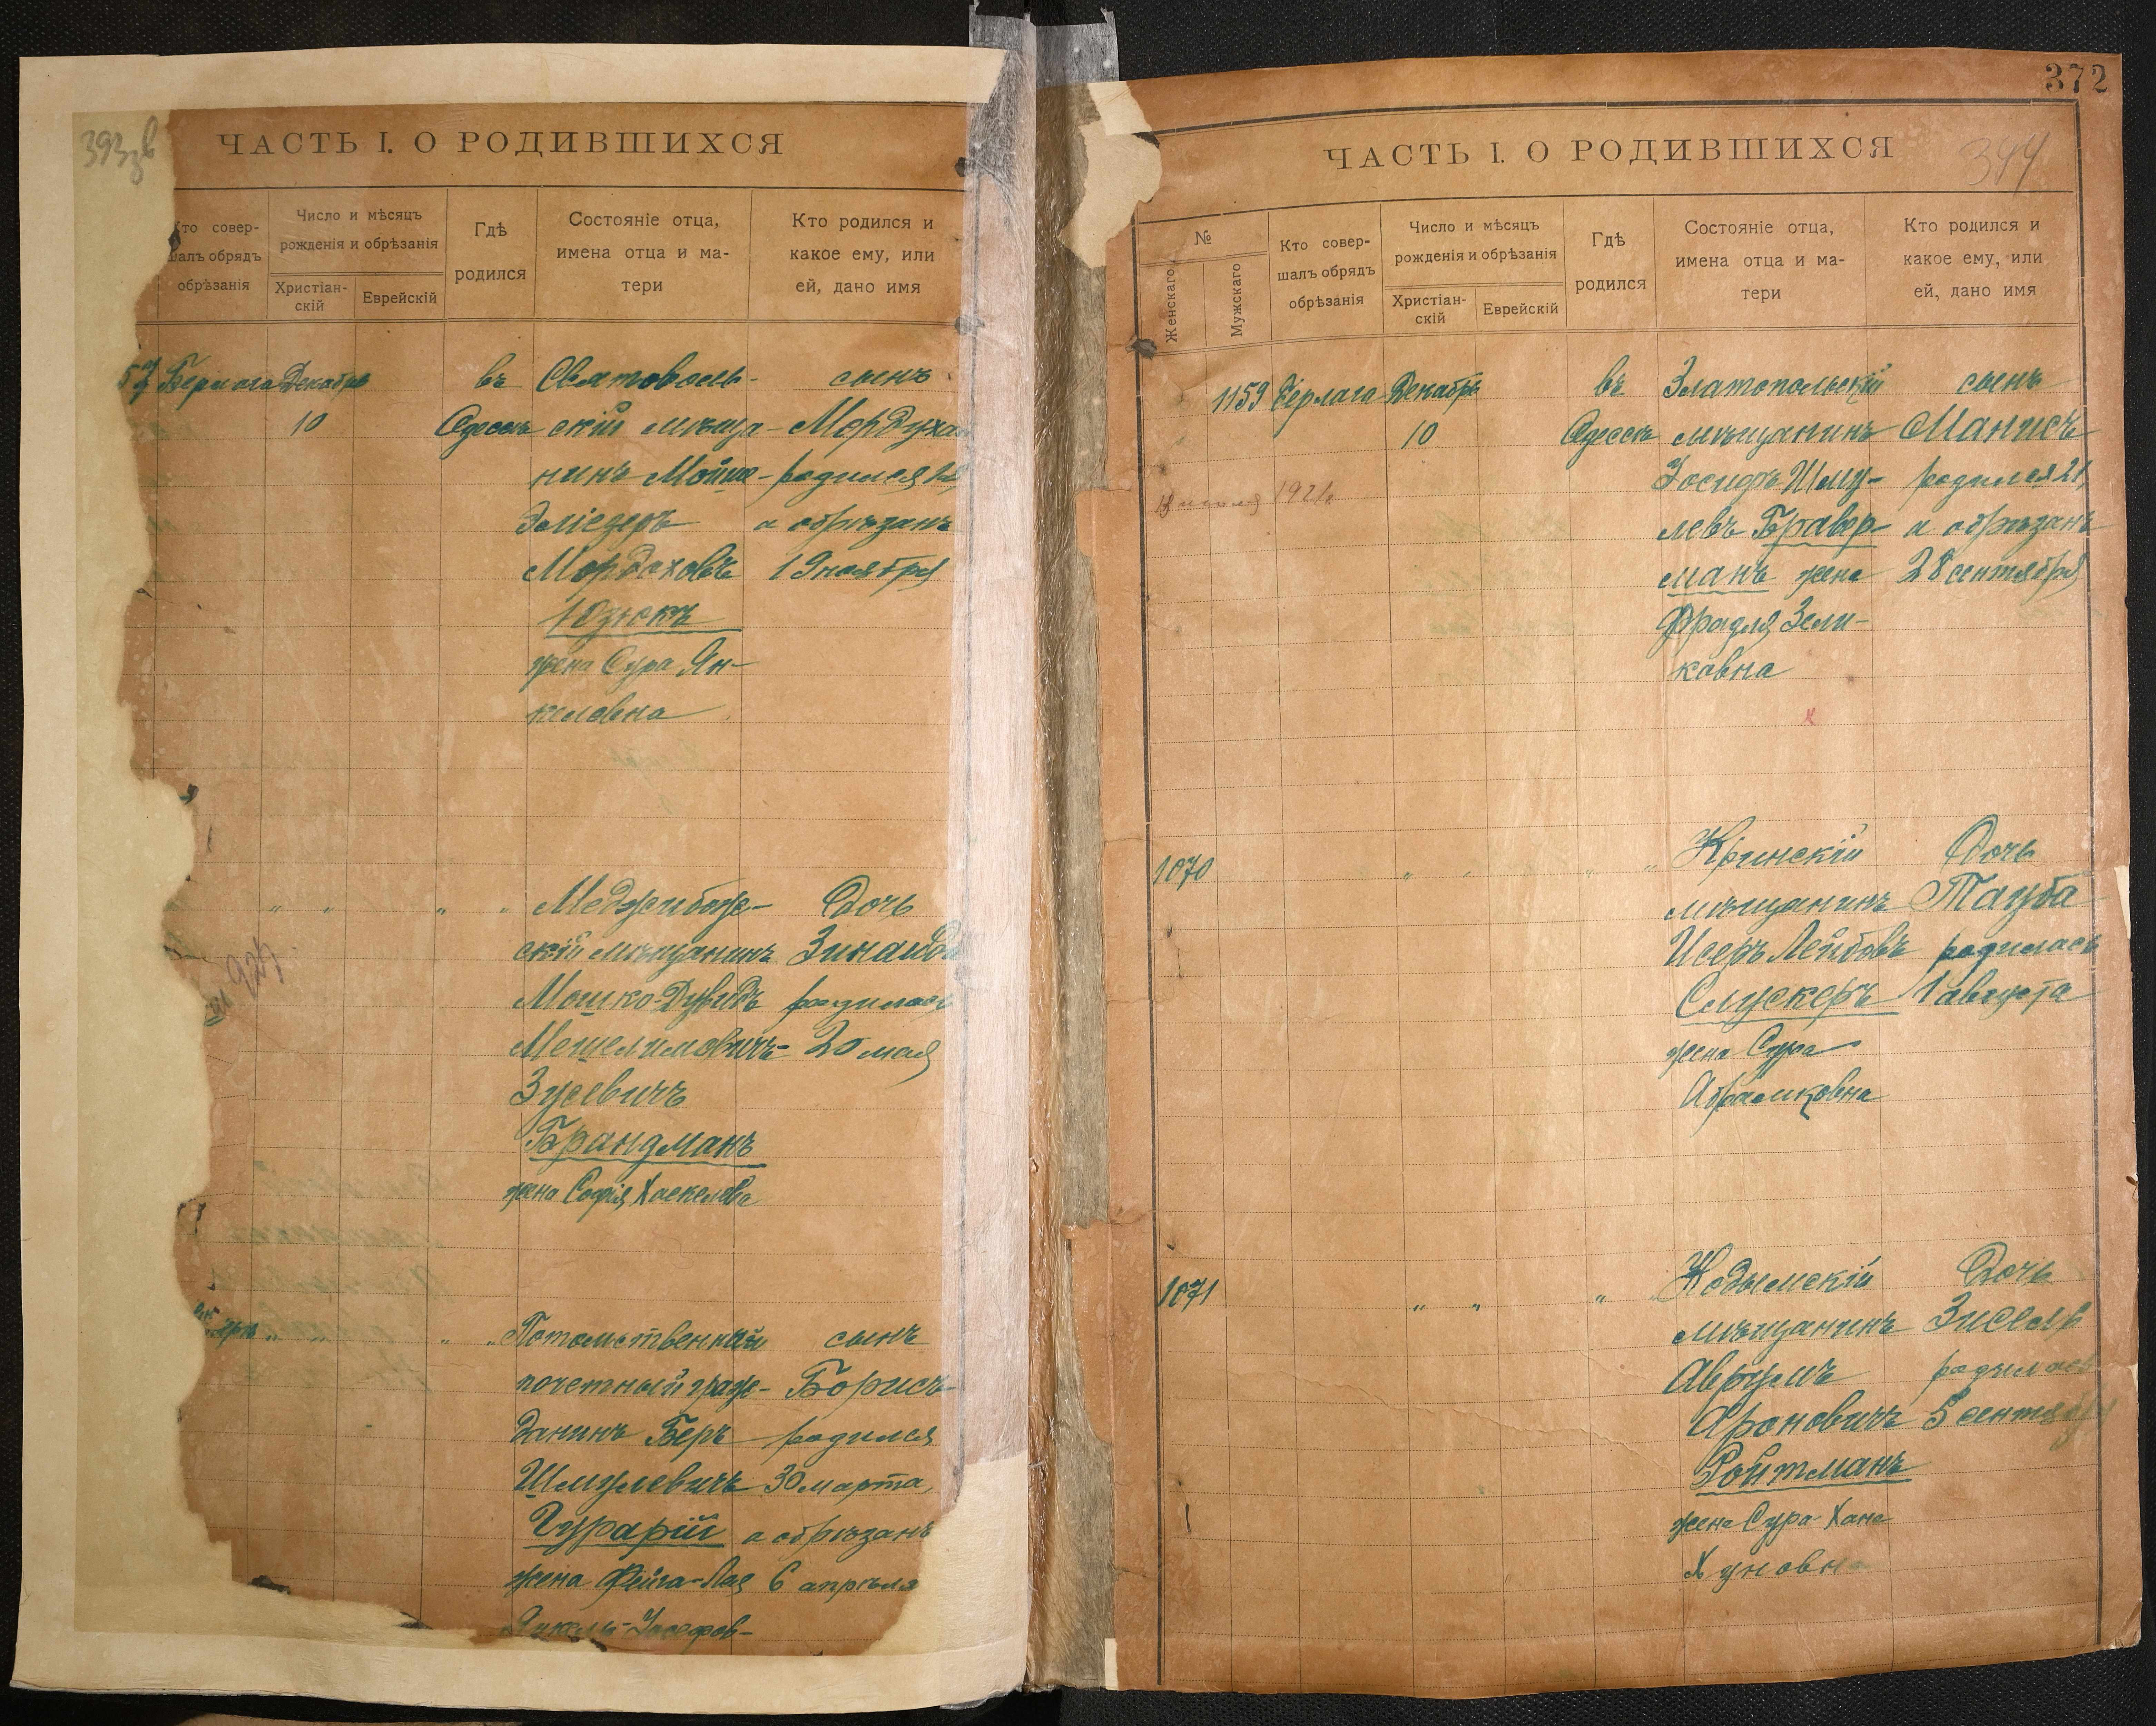 393
ЧАСТЬ I. О РОДИВШИХСЯ
Кто совер-
шалъ обрядъ
обрѣзанія
Число и мѣсяцъ
рожденія и обрѣзанія
Христіан-
скій
Еврейскій
Гдѣ
родился
Состояніе отца,
имена отца и ма-
тери
Кто родился и
какое ему, или
ей, дано имя
Декабрь
10
въ
Одессѣ
скій мѣща-
нинъ Мойше-
Эліезеръ
Мордховъ
Юзюкъ
жена Сура Ян-
келовна
сынъ
Мордуха
родился 12,
а обрѣзанъ
19 ноября
" " " "
Меджибож-
скій мѣщанинъ
Мошко-Дувидъ
Мешелимовичъ-
Зусевичъ
Брандманъ
жена Софія Хаскелева
Дочь
Зинаида
родилась
20 мая
" " " "
Потомственный
почетный граж-
данинъ Беръ
Шмулевичъ
Гурарій
жена Фейга-Лея
сынъ
Борисъ
родился
30 марта,
а обрѣзанъ
6 апрѣля
372
344
ЧАСТЬ I. О РОДИВШИХСЯ
№
Женскаго
Мужскаго
Кто совер-
шалъ обрядъ
обрѣзанія
Число и мѣсяцъ
рожденія и обрѣзанія
Христіан-
скій
Еврейскій
Гдѣ
родился
Состояніе отца,
имена отца и ма-
тери
Кто родился и
какое ему, или
ей, дано имя
1159
Герлага
Декабрь
10
въ
Одессѣ
Златопольскій
мѣщанинъ
Іосифъ Шму-
левъ Бравер-
манъ жена
Фрадля Зели-
ковна
сынъ
Манисъ
родился 21,
а обрѣзанъ
28 сентября
1070
" " " "
мѣщанинъ
Исеръ Лейбовъ
Слускеръ
жена Сура
Абрамковна
Дочь
Тауба
родилась
1 августа
1071
" " "
Кодымскій
мѣщанинъ
Аврумъ
Ароновичъ
Ройтманъ
жена Сура-Хана
Хуновна
Дочь
Зисель
родилась
5 сентября